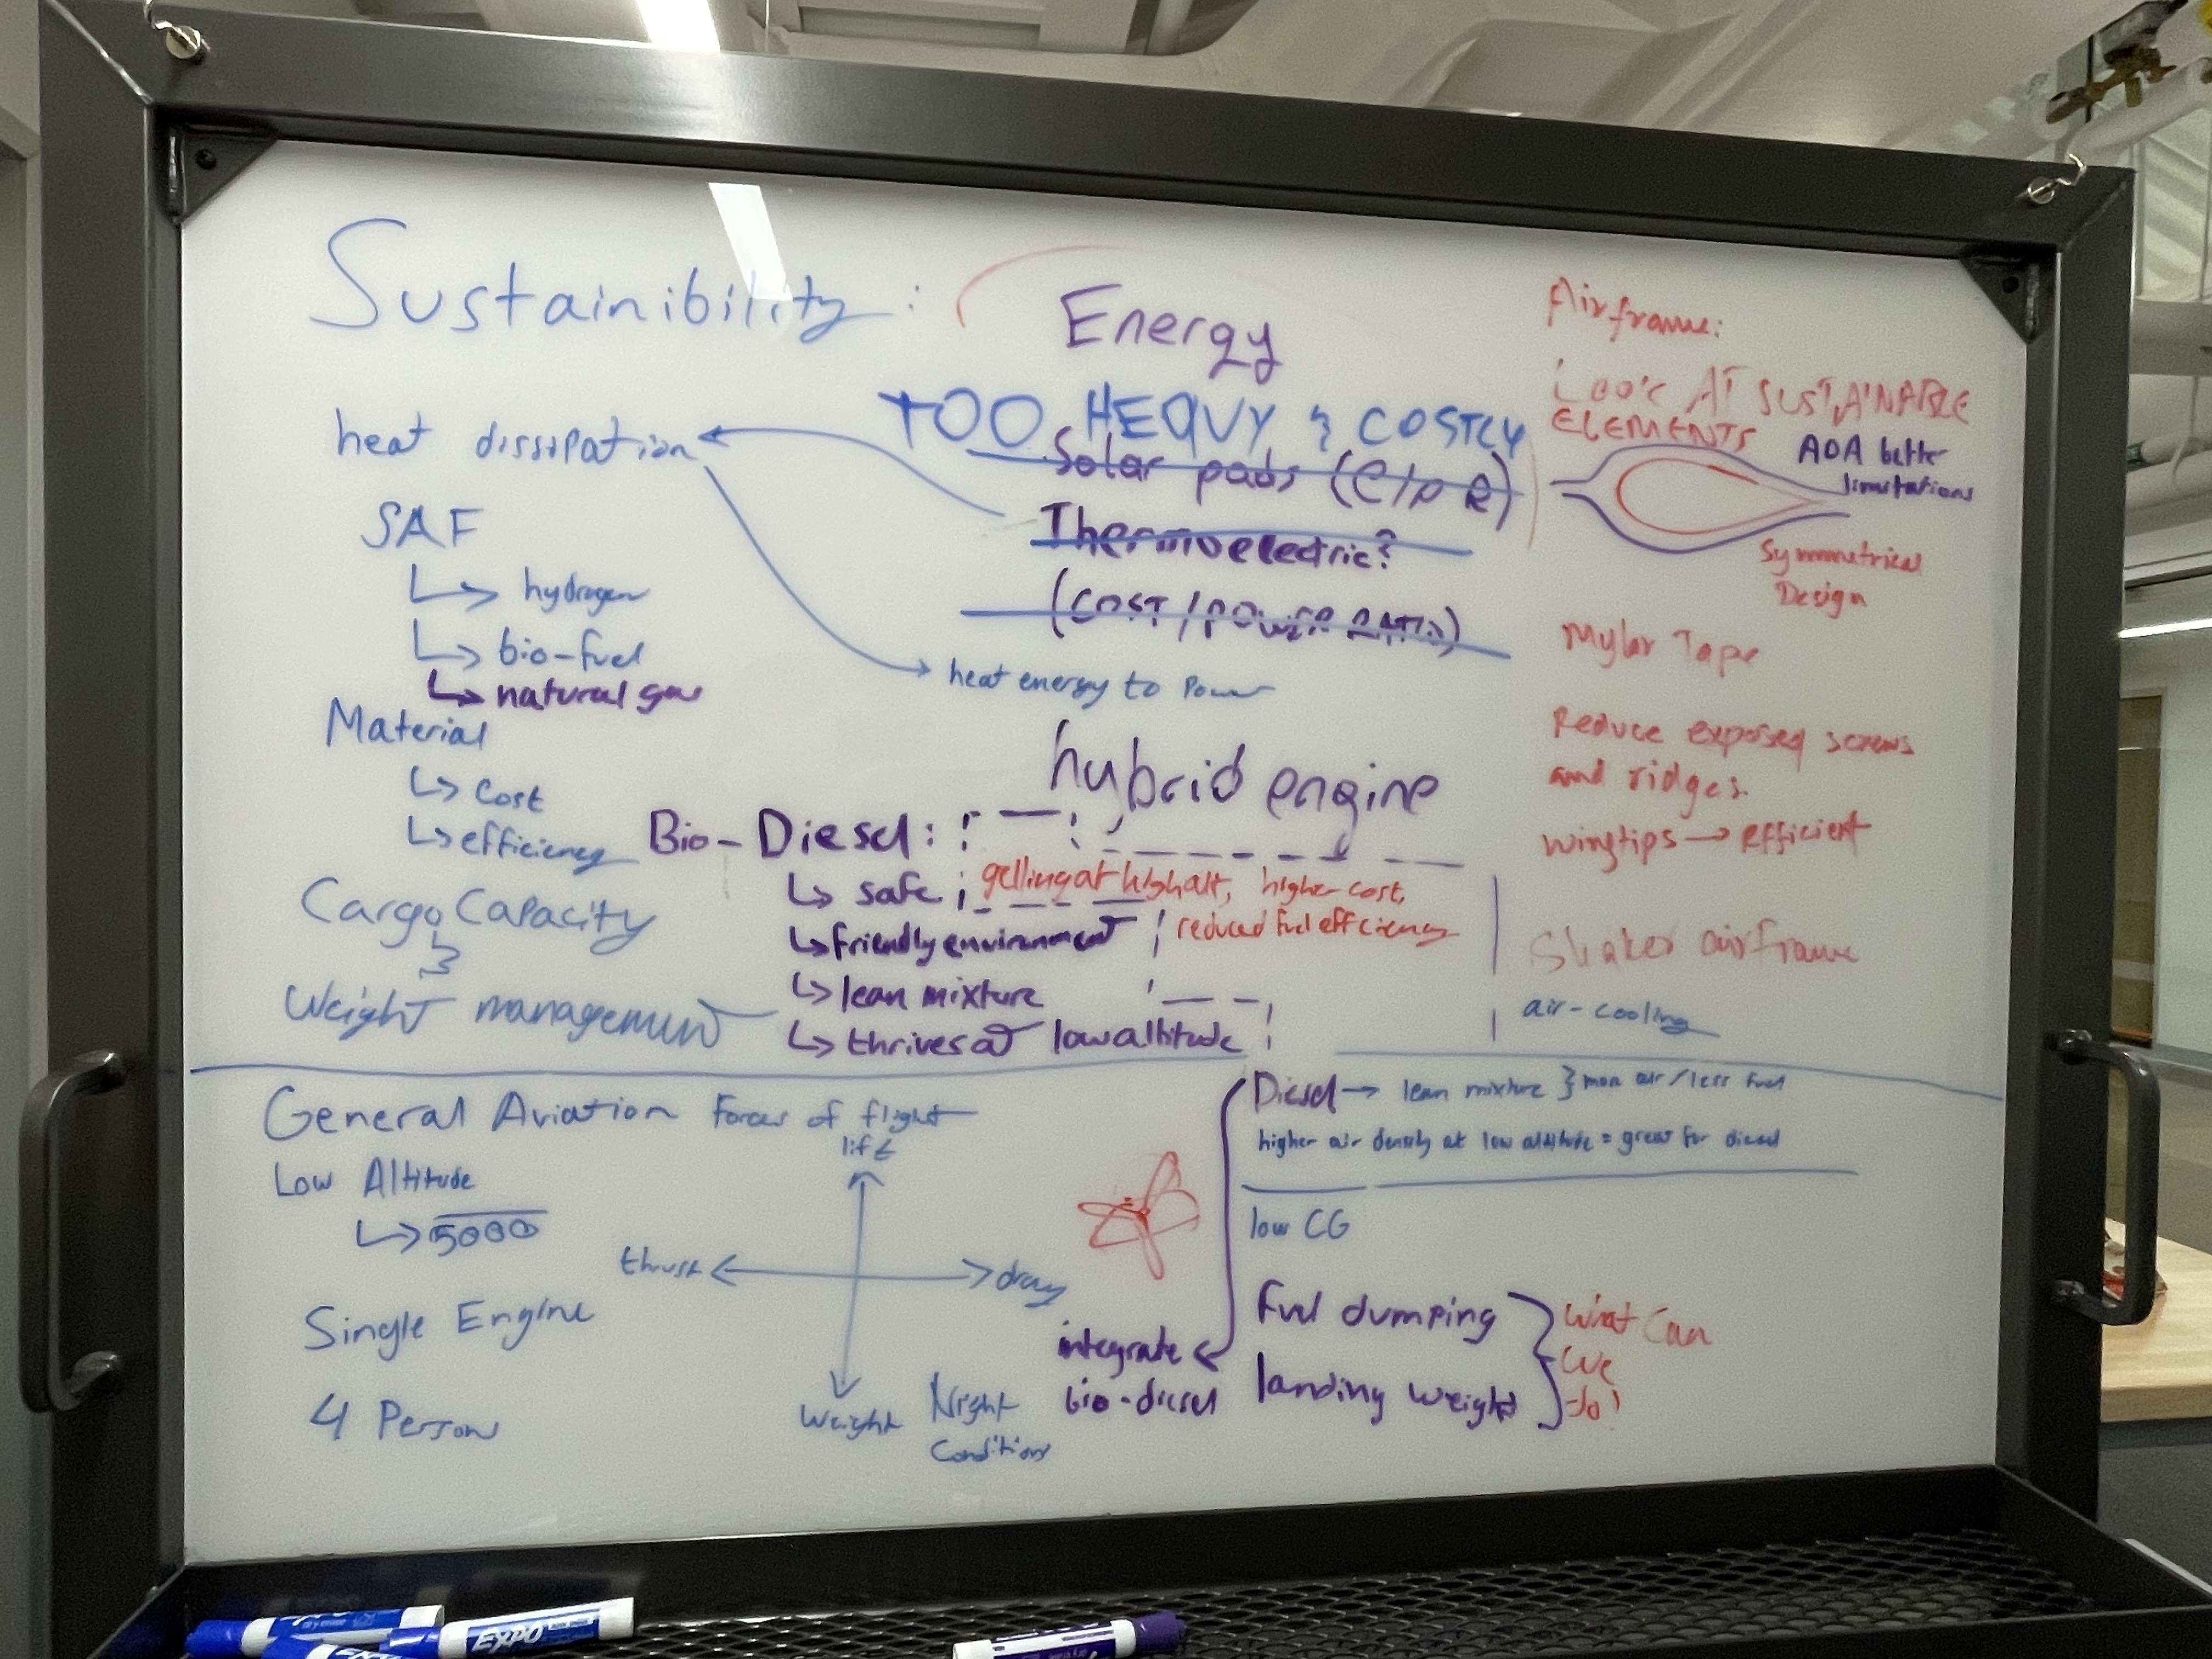 Sustainibility :
heat dissipation
SAF
hydrogen
bio-fuel
natural gas
Material
cost
efficiency
Cargo Capacity
&
Weight management
Energy
TOO HEAVY & COSTLY
Solar pads (C/P R)
Thermoelectric?
(COST / POWER RATIO)
heat energy to Power
hybrid engine
Bio-Diesel:
safe
friendly environment
lean mixture
thrives at low altitude
gelling at high alt, higher cost,
reduced fuel efficiency
Airframe:
LOOK AT SUSTAINABLE
ELEMENTS
AOA better
limitations
Symmetrical
Design
Mylar Tape
Reduce exposed screws
and ridges.
wingtips → efficient
airframe
air-cooling
General Aviation
Low Altitude
5000
Single Engine
4 Person
Forces of flight
lift
thrust
drag
Weight
Night
Conditions
Diesel → lean mixture } more air/less fuel
higher air density at low altitude = great for diesel
low CG
integrate
bio-diesel
fuel dumping
landing weight
What Can
We
do?
EXPO